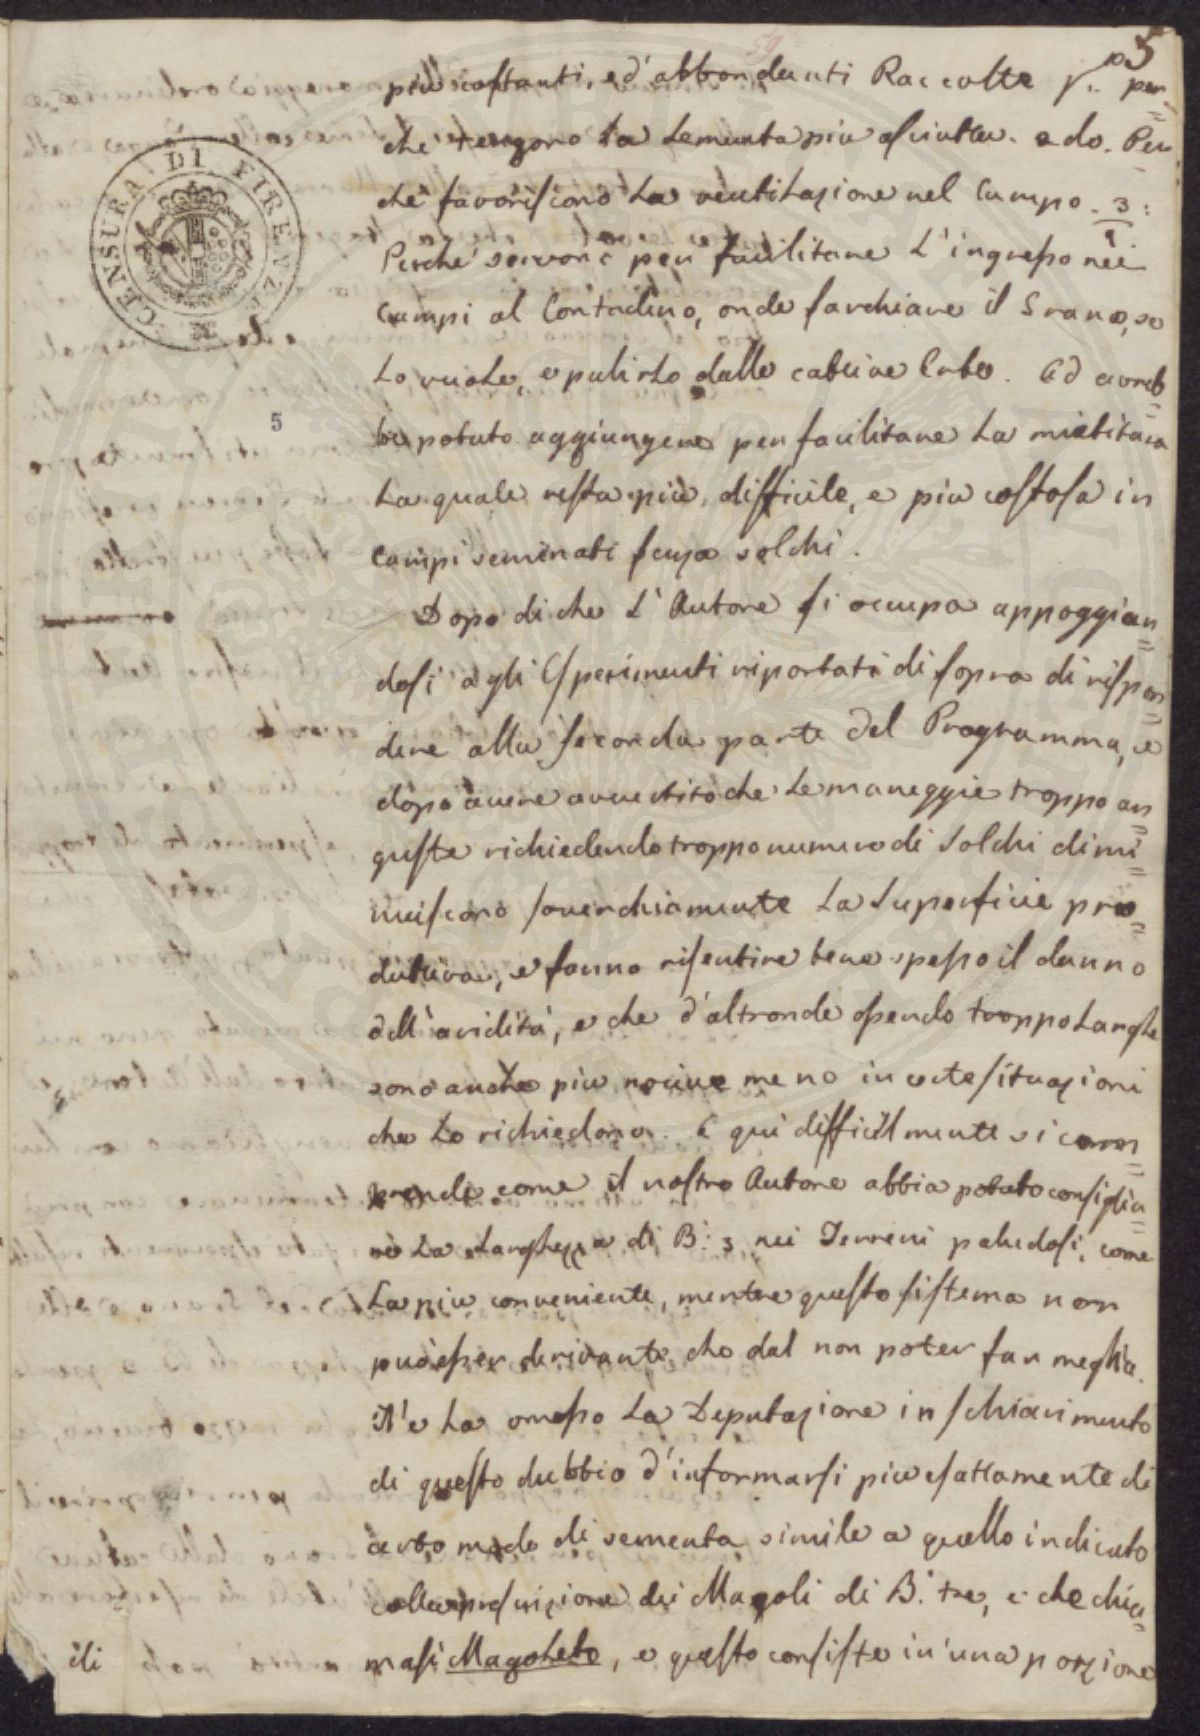 5
59
più costanti, ed'abbondanti Raccolte po: per=
che tengono La Sementa più asciutta. e do. Per=
che favoriscono La ventilazione nel Campo. 3:
Perche servono per facilitare L'ingresso nei
CENSURA DI FIRENZE
Campi al Contadino, onde sarchiare il Grano, se
Lo vuole, e pulirlo dalle cattive Erbe. Ed avreb=
5
be potuto aggiungere per facilitare La mietitura
La quale resta più difficile, e più costosa in
Campi seminati senza solchi.
Dopo di che L'Autore si occupa appoggian=
dosi agli Esperimenti riportati di sopra di rispon=
dere alla seconda parte del Programma, e
dopo avere avvertito che Le maneggie troppo an=
guste richiedendo troppo numero di Solchi dimi=
nuiscono soverchiamente La Superficie pro=
duttiva, e fanno risentire bene spesso il danno
dell'aridità, e che d'altronde essendo troppo Larghe
sono anche più nocive meno in certe situazioni
che Lo richiedono. E quì difficilmente si com=
prende come il nostro Autore abbia potuto consiglia=
re La Larghezza di B: 3 nei Terreni paludosi, come
La più conveniente, mentre questo sistema non
può esser derivante che dal non poter far meglio.
Ne ha omesso La Deputazione in schiarimento
di questo dubbio d'informarsi più esattamente di
certo modo di sementa simile a quello indicato
colla prefinizione dei Magoli di B: tre, e che chia=
masi Magolato, e questo consiste in una porzione